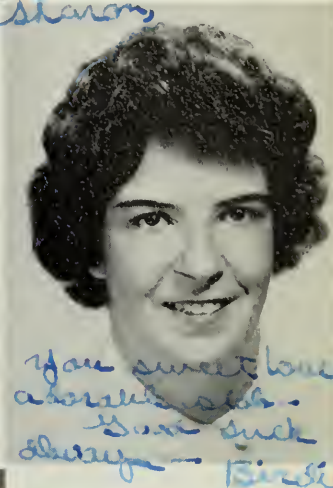 Sharon,
You sweet love
adorable
Good luck
always —
Birdi